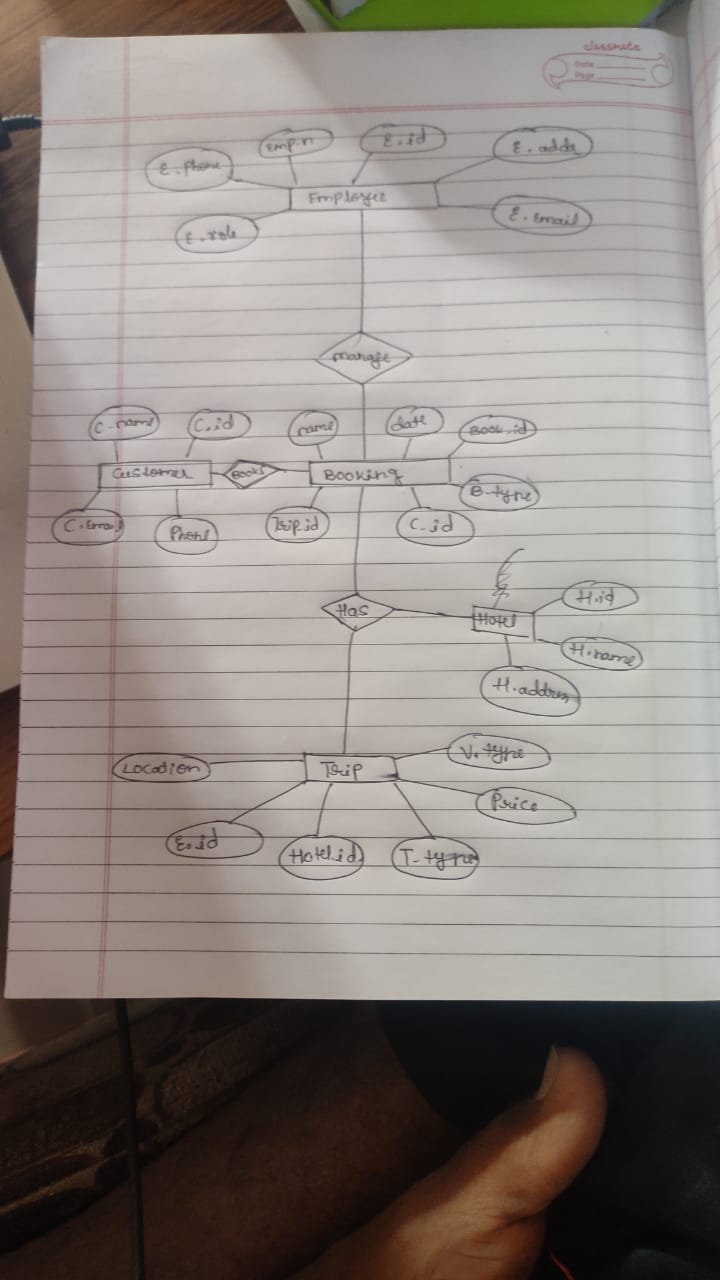 classmate
Date
Page
Emp.n
E.id
E.addr
E.phone
Employee
E.role
E.Email
manage
C-name
C.id
name
date
Book.id
Customer
Books
Booking
B-type
C.Email
Phone
Trip.id
C-id
Has
Hotel
H.id
H.name
H.address
Location
Trip
V.type
Price
E.id
Hotel.id
T-type